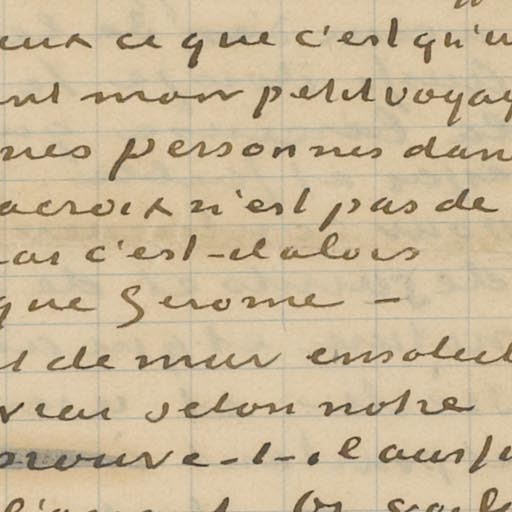 eux ce que c'est qu'u
nt mon petit voyag
nes personnes dan
acroix n'est pas de
car c'est-dalors
que Gerome -
t de mur ensoleil
vrai selon notre
prouve-t-il aussi